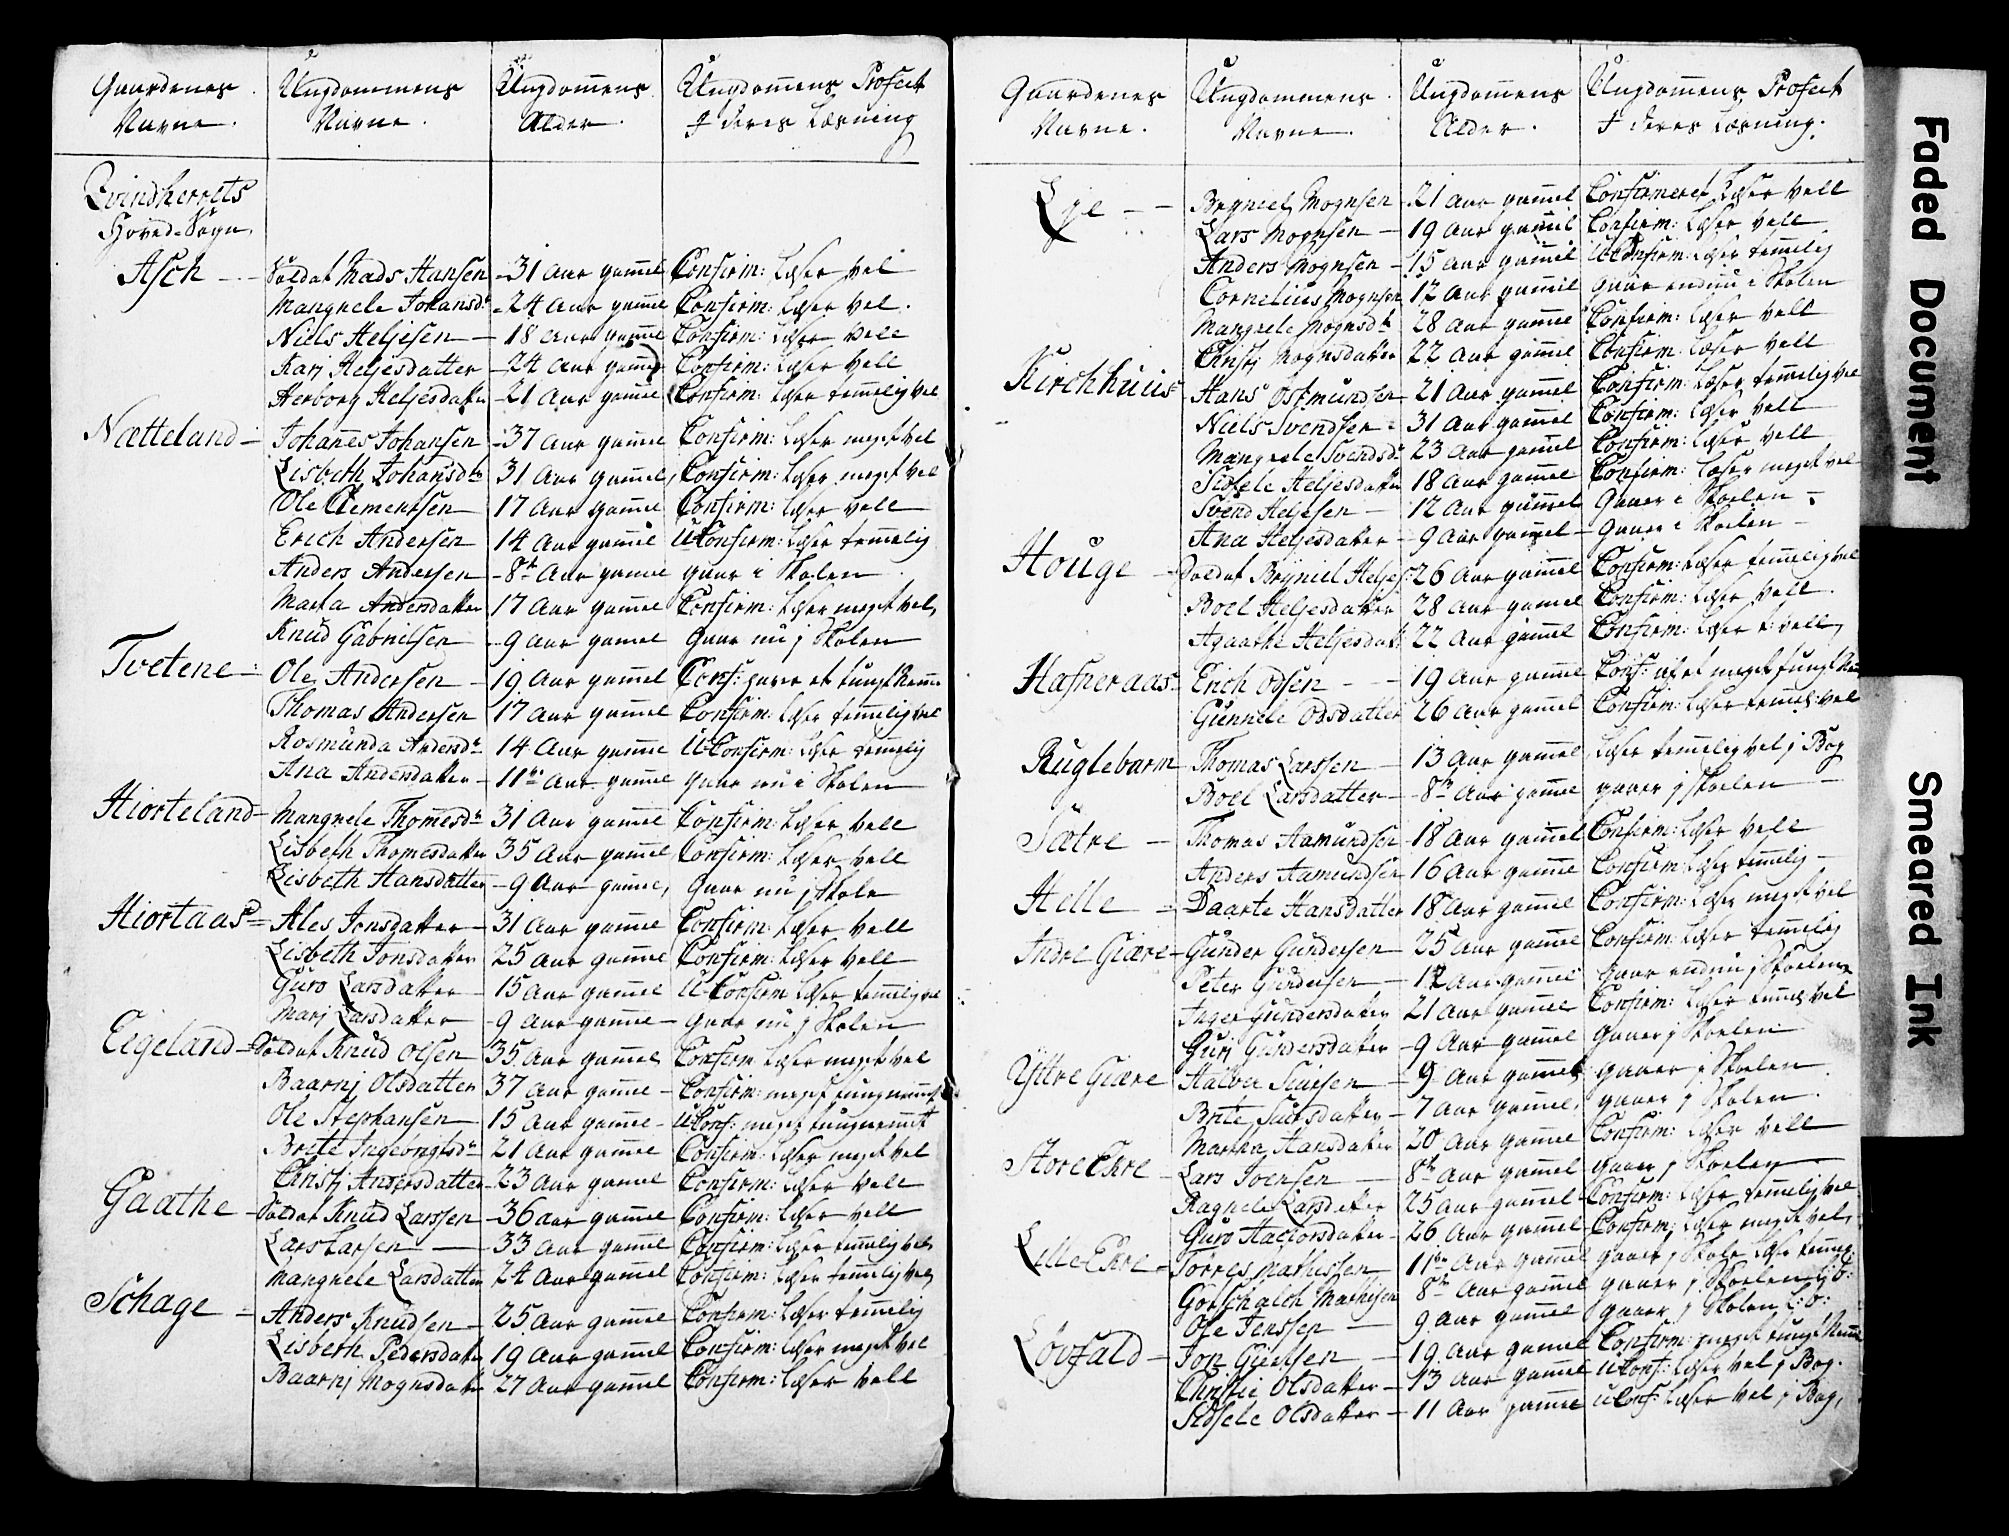 Gaardenes Navne. Ungdommens Navne. Ungdomens Alder. Ungdomens Profect I deres Læsning
Qvindherrets
Hoved-Sogn.
Asch - Soldat Mads Hansen - 31 Aar gamel Confirm: Læser vel
Mangnele Johansdr - 24 Aar gamel Confirm: Læser vel.
Niels Heljesen - 18 Aar gamel Confirm: Læser vell
Karj Heljesdatter - 24 Aar gamel Confirm: Læser vell
Herborg Heljesdatter - 21 Aar gamel Confirm: Læser temelig vel
Nætteland - Johanes Johansen - 37 Aar gamel Confirm: Læser meget vel
Lisbeth Johansdtr 31 Aar gamel, Confirm: Læser meget vel
Ole Clementsen 17 Aar gamel Confirm: Læser vell
Erich Andersen 14 Aar gamel UConfirm: Læser temelig
Anders Andersen - 8te Aar gamel gaar i Skolen
Marta Andersdatter 17 Aar gamel Confirm: Læser meget vel,
Knud Gabrielsen - 9 Aar gamel Gaar nu j Skolen
Tvetene - Ole Andersen - 19 Aar gamel Conf: haver et tungt Neme
Thomas Andersen 17 Aar gamel Confirm: Læser temelig vel
Rosmunda Andersdr 14 Aar gamel U-Confirm: Læser temelig
Ana Andersdatter - 11te Aar gamel gaar nu i Skolen
Hiorteland - Mangnele Thomesdr 31 Aar gamel Confirm: Læser vell
Lisbeth Thomesdatter 35 Aar gamel Confirm: Læser vell
Lisbeth Hansdatter - 9 Aar gamel, Gaar nu j Skole
Hiortaas - Ales Jonsdatter - 31 Aar gamel Confirm: Læser vell
Lisbeth Jonsdatter 25 Aar gamel Confirm: Læser vell
Guro Larsdatter - 15 Aar gamel U-Confirm Læser temelig vel
Marj Larsdatter - 9 Aar gamel - Gaar nu j Skolen
Eigeland - Soldat Knud Olsen - 35 Aar gamel Confirm Læser meget vel
Baarnj Olsdatter 37 Aar gamel - Confirm: meget tungnemet
Ole Stephansen 15 Aar gamel - UConf: meget tungnemet
Brite Ingebrigtsdr 21 Aar gamel Confirm: Læser meget vel
Christj Andersdatter - 23 Aar gamel Confirm: Læser vell
Gaathe - Soldat Knud Larssen - 36 aar gamel Confirm: Læser vell
Lars Larsen - 33 Aar gamel Confirm: Læser temelig vel,
Mangnele Larsdatter 24 Aar gamel Confirm: Læser temelig vel,
Schage - Anders Knudsen - 25 Aar gamel Confirm: Læser temelig
Lisbeth Pedersdatter 19 Aar gamel Confirm: Læser meget vel
Baarnj Mognsdatter 27 Aar gamel Confirm: Læser vell
Gaardenes Navne. Ungdommens Navne. Ungdomens Alder. Ungdomens Profect I deres Læsning.
Lye - - Brÿniel Mognsen - 21 Aar gamel Confirmeret Læser vell
Lars Mognsen - 19 Aar gamel Confirm: Læser vell
Anders Mognsen - 15 Aar gamel UConfirm: Læser temelig
Cornelius Mognsen 12 Aar gamel gaar endnu i Skolen
Mangnele Mognsdtr 28 Aar gamel Confirm: Læser vell
Christj Mognsdatter 22 Aar gamel Confirm: Læser vell
Kirchhuus - Hans Osmundsen - 21 Aar gamel Confirm: Læser temelig vel
Niels Svendsen - 31 Aar gamel Confirm: Læser vell
Mangnele Svendsdr 23 Aar gamel Confirm: Læser vell
Sidsele Heljesdatter 18 Aar gamel Confirm: Læser meget vel
Svend Heljesen - 12 Aar gamel Gaaer i Skolen -
Ana Heljesdatter - 9 Aar gamel - Gaaer i Skolen -
Houge - Soldat Brÿniel Heljes: 26 Aar gamel Confirm: Læser temelig vel
Boel Heljesdatter 28 Aar gamel Confirm: Læser vell.
Agaathe Heljesdatt 22 Aar gamel Confirm: Læser t: vell,
Hafneraas - Erich Odsen - - 19 Aar gamel Conf: af et meget tungt Neme
Gunnele Odsdatter 26 Aar gamel Confirm: Læser temel: vel
Ruglebarm - Thomas Larssen - 13 Aar gamel Læser temelig vel j Bog
Boel Larsdatter - 8te Aar gamel gaaer j Skolen -
Sætre - Thomas Aamundsen - 18 Aar gamel Confirm: Læser vell
Anders Aamundsen 16 Aar gamel Confirm Læser temelig -
Helle - Daarte Hansdatter 18 Aar gamel Confirm: Læser meget vel
Indre Giære - Gunder Gundersen - 25 Aar gamel Confirm: Læser temelig
Peter Gundersen - 12 Aar gamel Gaar endnu j Skolen
Inger Gundersdatter 21 Aar gamel Confirm: Læser temel vel
Gurj Gundersdatter - 9 Aar gamel Gaaer j Skolen
Ÿttre Giære Halvor - 9 Aar gamel gaaer j Skolen
Brite - 7 Aar gamel, gaaer j Skolen.
Martha Hansdatter 20 Aar gamel Confirm: Læser vell
Store Ekre - Lars Joensen - 8te Aar gamel gaaer j Skolen
Ragnele Larsdatter 25 Aar gamel Confirm: Læser temelig vel
Guro Haldorsdatter - 26 Aar gamel Confirm: Læser meget vel,
Lille Ekre - Torres Mathissen 11te Aar gamel gaaer j Skole Læser temel:
Gotschalch Mathisen 8te Aar gamel gaaer j Skolen
Ole Jenssen - 9 Aar gamel gaaer j Skolen
Løvfald - Jon - 19 Aar gamel Confirm: meget tungt Neme
Christie Olsdatter - 13 Aar gamel UConf: Læser vel j Bog.
Sidsele Olsdatter - 11 Aar gamel UConf: Læser vel j Bog,
Faded Document
Smeared Ink